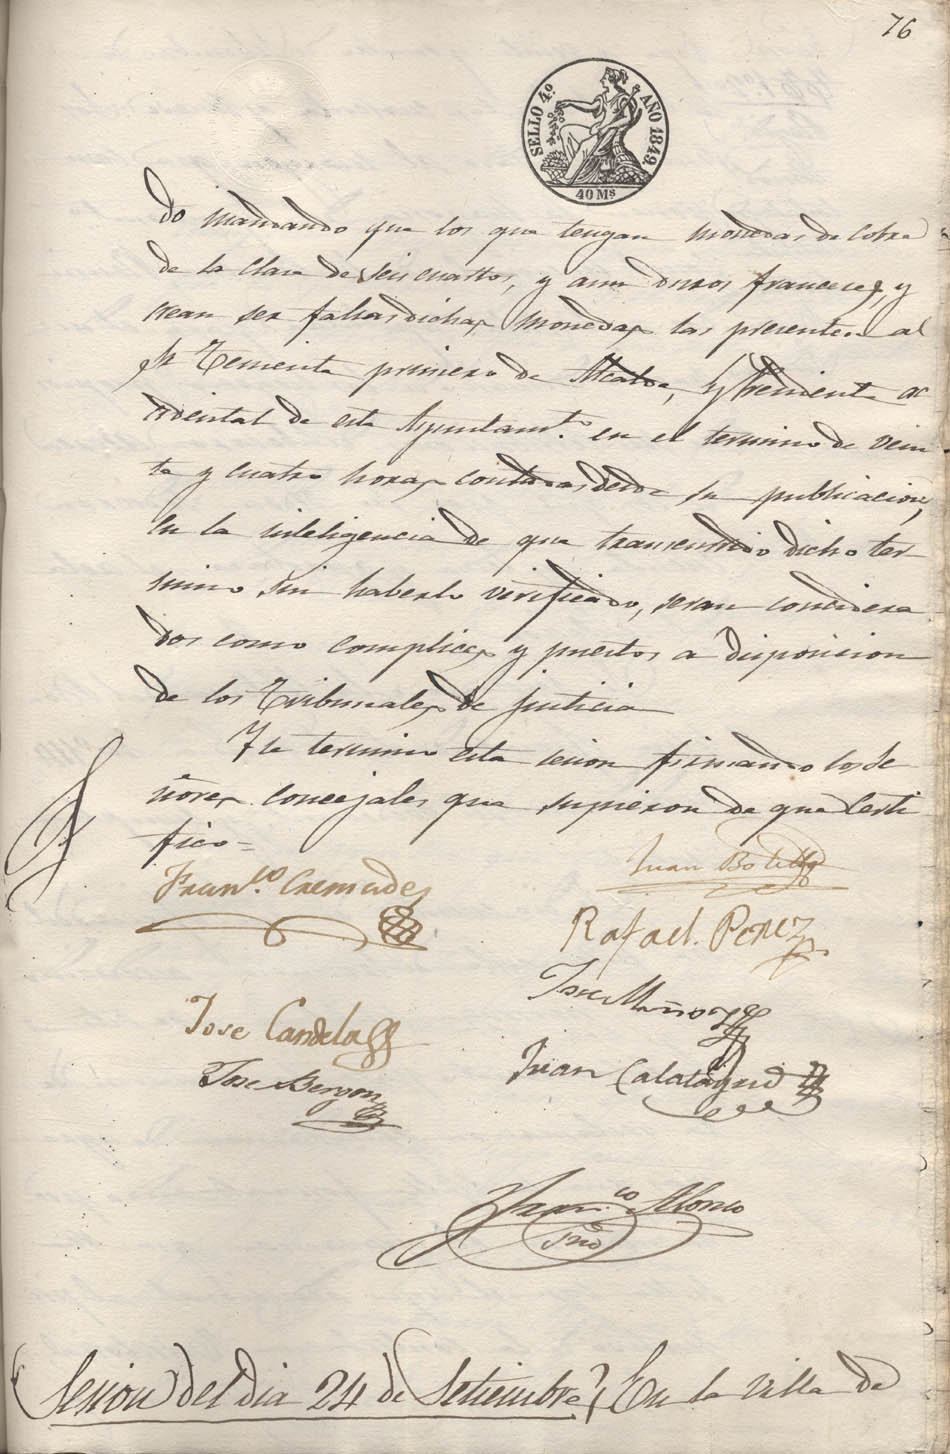 76
SELLO 4º AÑO 1849.
40 Ms
do mandando que los que tengan monedas de cobre
de la clase de seis cuartos, y aun duros franceses, y
crean ser falsas dichas monedas las presenten al
Sr Teniente primero de Alcalde, y Presidente ac
cidental de este Ayuntamto. en el termino de vein
te y cuatro horas contadas desde su publicacion,
en la inteligencia de que transcurrido dicho ter
mino sin haberlo virificado, seran considera
dos como complices y puestos a disposicion
de los Tribunales de justicia
Y se termino esta sesion firmando los Se
ñores concejales que supieron de que Certi
fico=
Franco. Cremades
Juan Botella
Rafael Perez
Jose Muñoz
Jose Candela
Jose Bergon
Juan Calatayud
Franco Alonso
Srio
Sesion del dia 24 de Setiembre, En la villa de